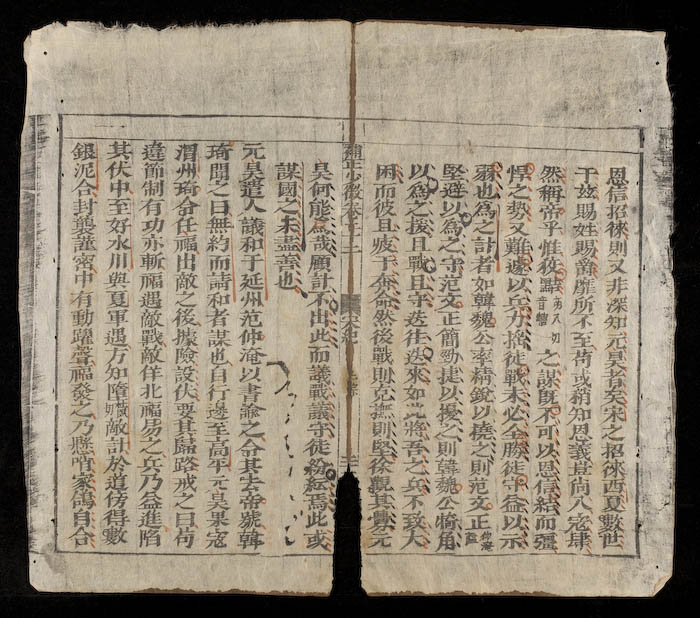 恩信招徠則又非深知元昊者矣宋之招徠西夏數世
于玆賜姓賜爵靡所不至苟或稍知恩義豈尚入寇肆
然稱帝乎惟狡 之謀旣不可以恩信結而彊
悍之勢又難遽以兵力捨徒戰未必全勝徒守益以示
弱也爲之計者如韓魏公率精銳以撓之則范文正 仲淹
堅避以爲之守范文正簡勁捷以擾之則韓魏公犄角
以爲之援且戰且守迭往迭來如此將吾之兵不致大
困而彼且疲于奔命然後戰則克撫則堅徐觀其弊元
補正少微卷
宋紀
昊何能然哉顧計不出此而議戰議守徒紛紜焉此或
謀國之未盡善也
元昊遣人議和于延州范仲淹以書諭之令其去帝號韓
琦聞之曰無約而請和者謀也自行邊至高平元昊果宼
渭州琦令任福出敵之後據險設伏要其歸路戒之曰苟
違節制有功亦斬福遇敵戰敵佯北福易之兵乃益進陷
其伏中至好水川與夏軍遇方知墮 敵計於道傍得數
銀泥合封襲謹密中有動躍聲福發之乃懸哨家鴿自合